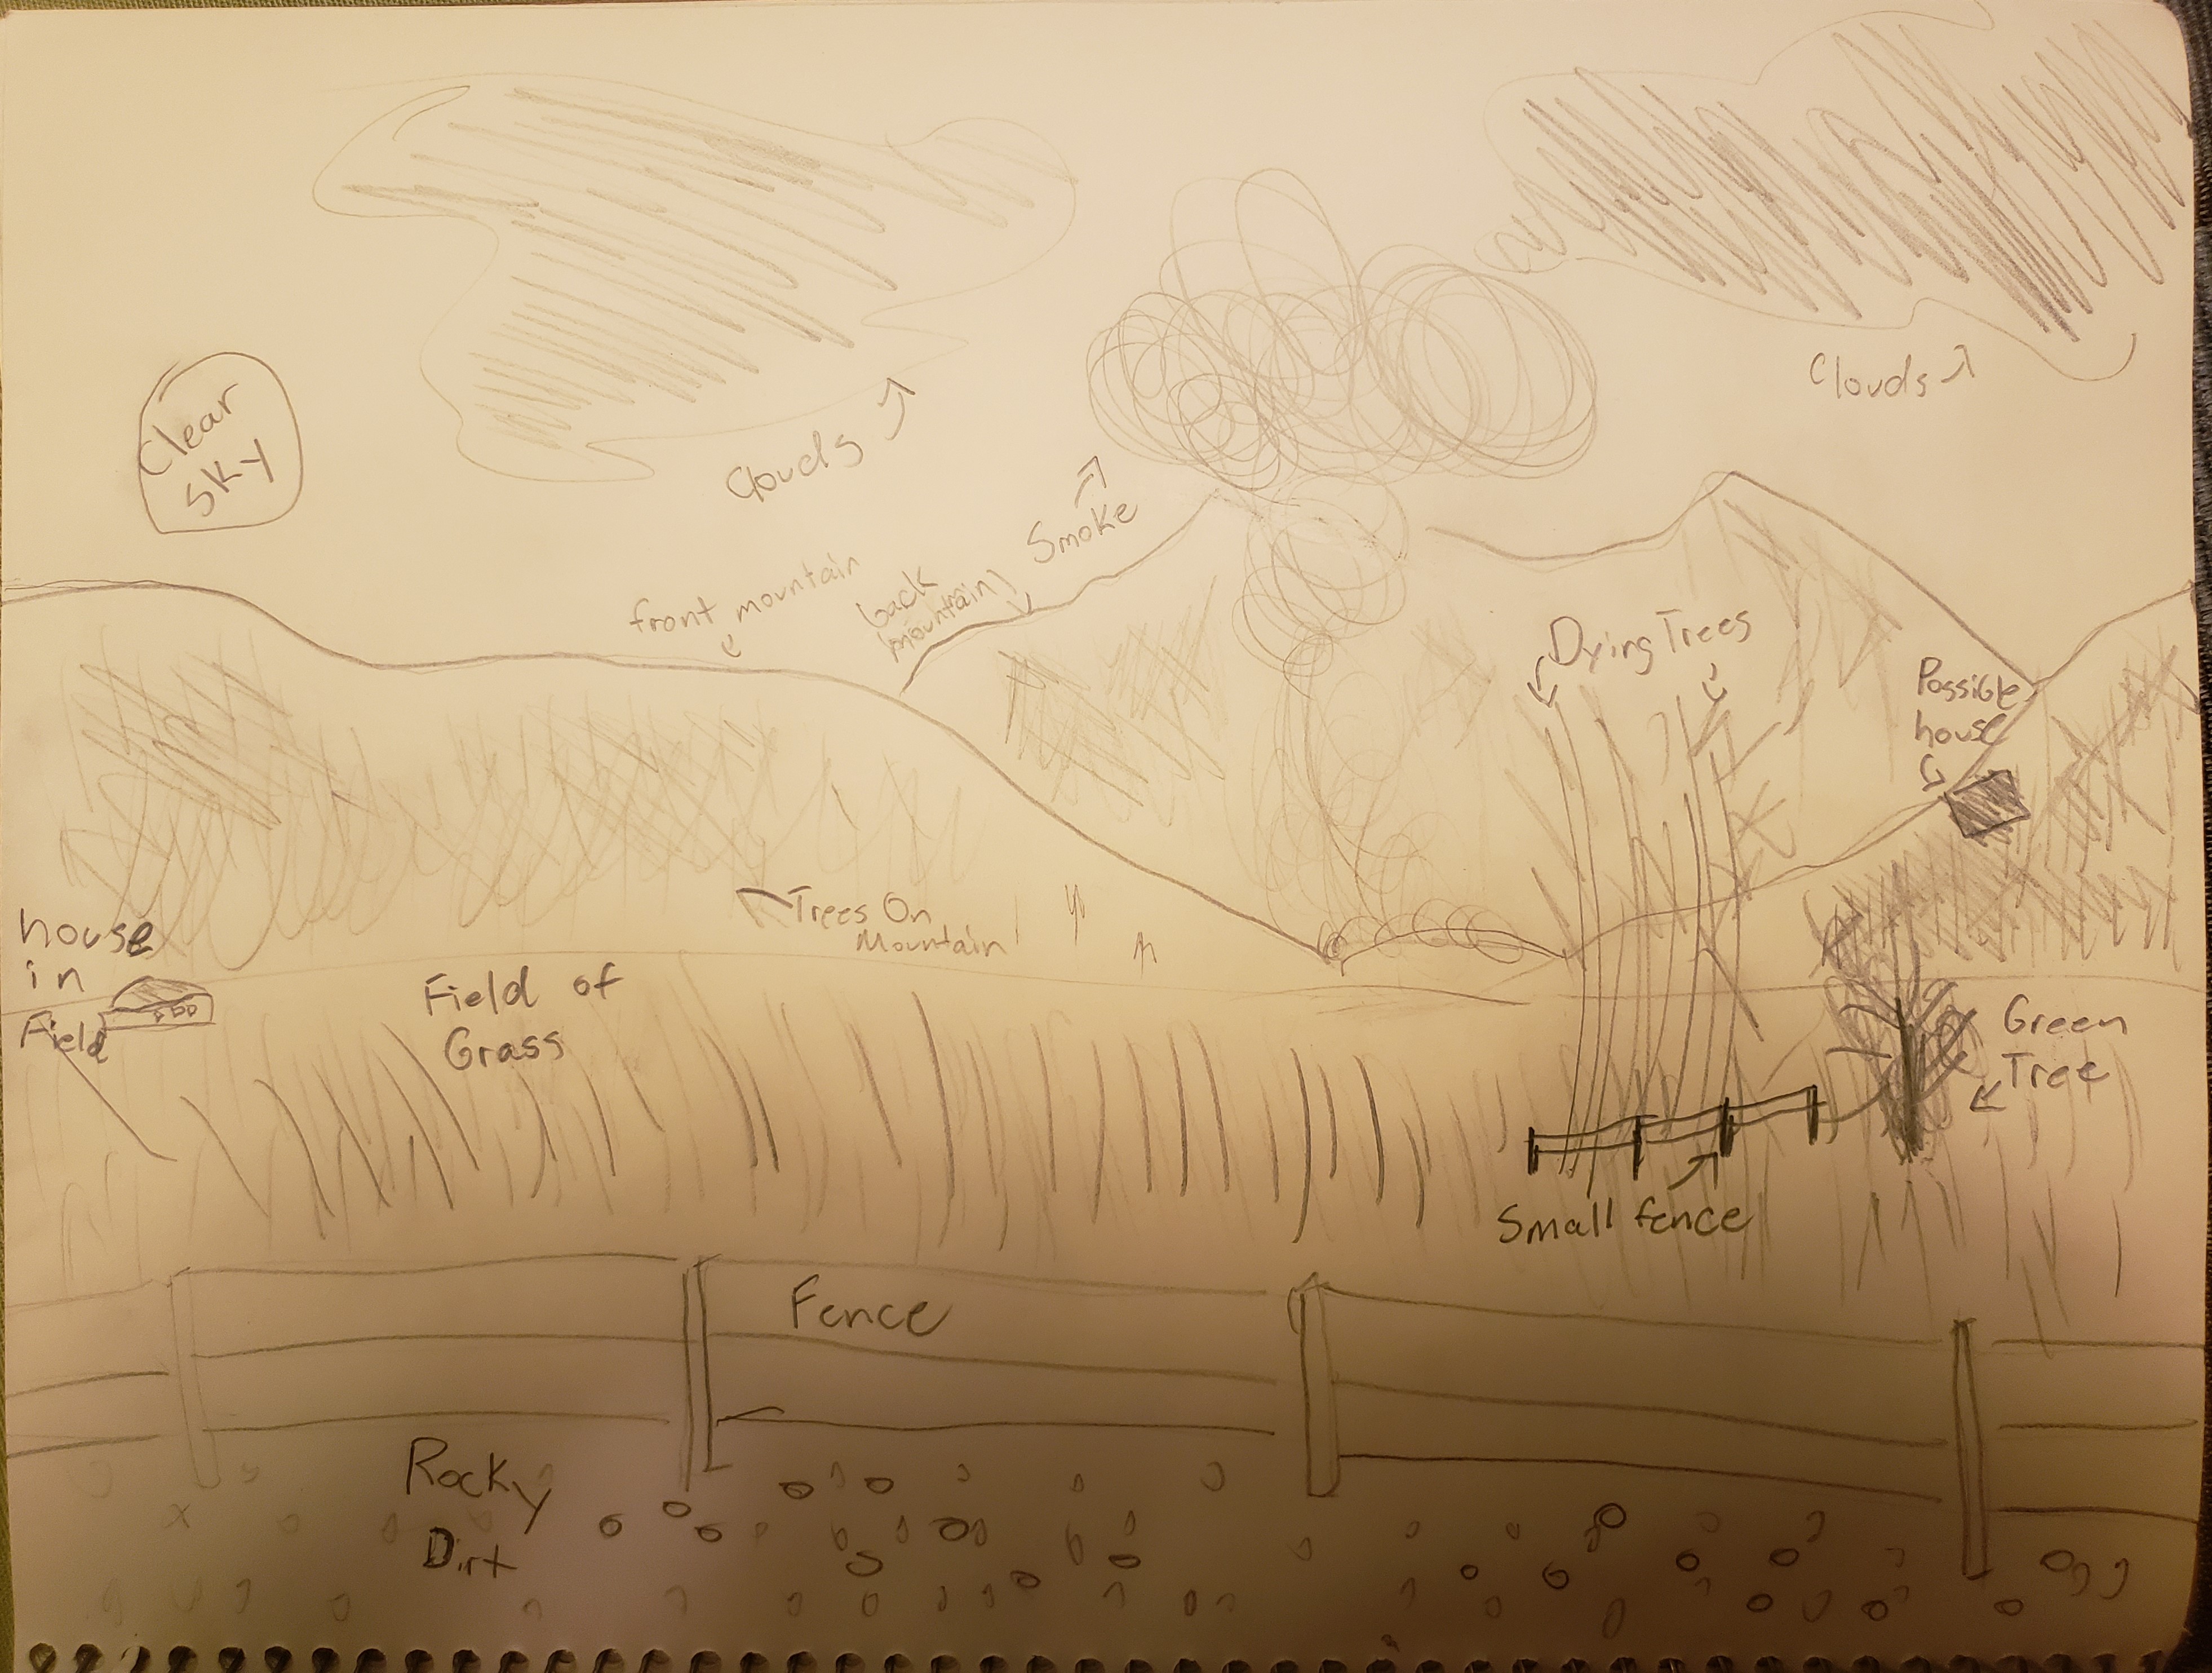 Clear
Sky
Clouds
Clouds
Smoke
front mountain
back
mountain
Dying Trees
Possible
house
Trees On
Mountain
house
in
Field
Field of
Grass
Green
Tree
Small fence
Fence
Rocky
Dirt